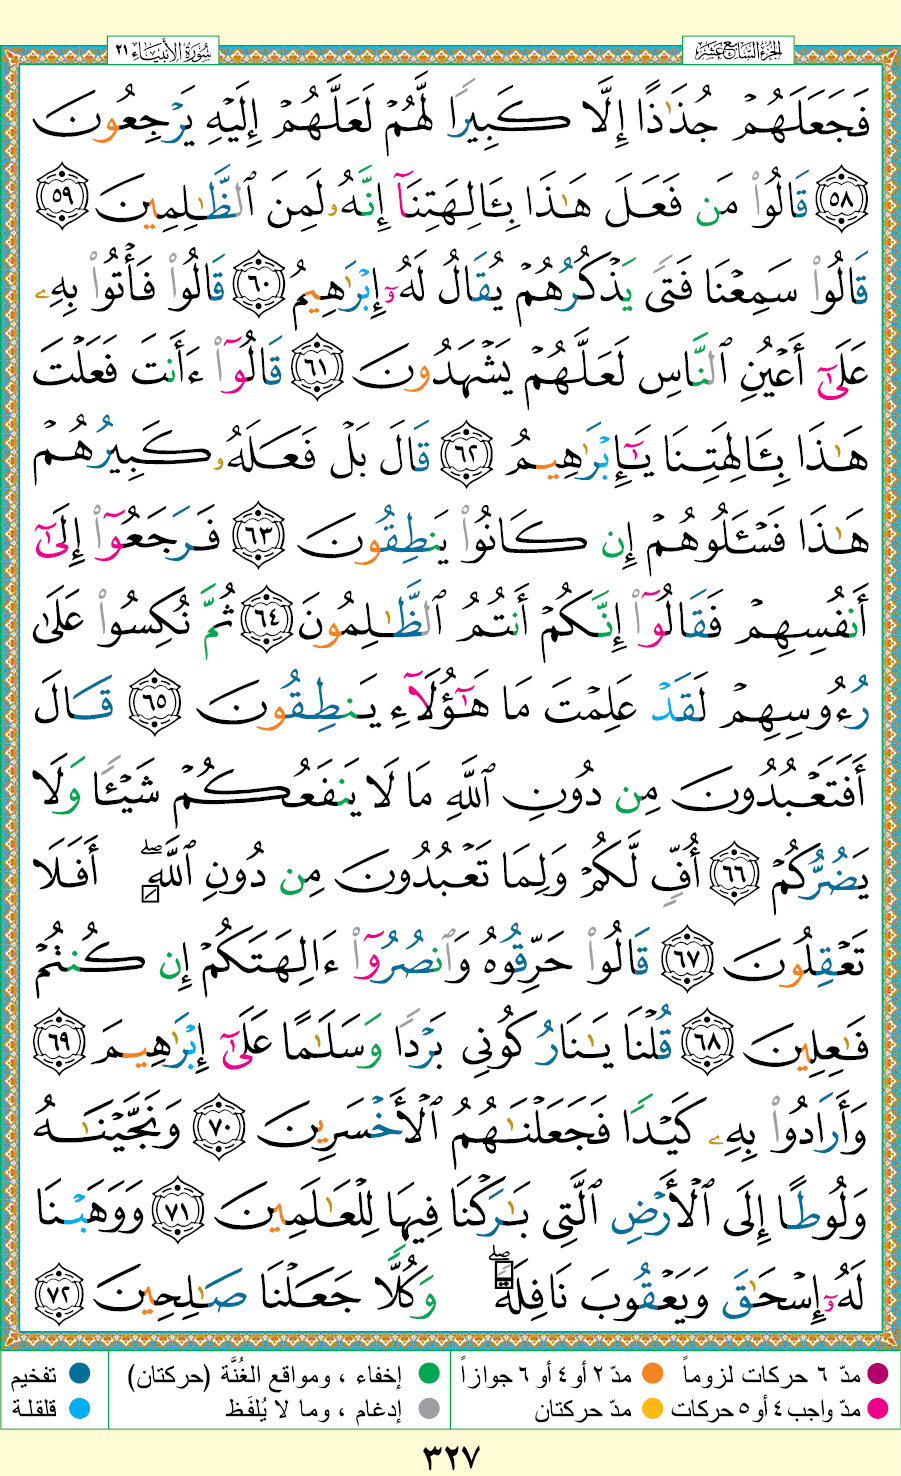 سُورَةُ الأَنبِيَاء ٢١
الجُزءُ السَّابِعُ عَشَرَ
فَجَعَلَهُمْ جُذَٰذًا إِلَّا كَبِيرًا لَّهُمْ لَعَلَّهُمْ إِلَيْهِ يَرْجِعُونَ
٥٨ قَالُوا۟ مَن فَعَلَ هَٰذَا بِـَٔالِهَتِنَآ إِنَّهُۥ لَمِنَ ٱلظَّٰلِمِينَ ٥٩
قَالُوا۟ سَمِعْنَا فَتًى يَذْكُرُهُمْ يُقَالُ لَهُۥٓ إِبْرَٰهِيمُ ٦٠ قَالُوا۟ فَأْتُوا۟ بِهِۦ
عَلَىٰٓ أَعْيُنِ ٱلنَّاسِ لَعَلَّهُمْ يَشْهَدُونَ ٦١ قَالُوٓا۟ ءَأَنتَ فَعَلْتَ
هَٰذَا بِـَٔالِهَتِنَا يَٰٓإِبْرَٰهِيمُ ٦٢ قَالَ بَلْ فَعَلَهُۥ كَبِيرُهُمْ
هَٰذَا فَسْـَٔلُوهُمْ إِن كَانُوا۟ يَنطِقُونَ ٦٣ فَرَجَعُوٓا۟ إِلَىٰٓ
أَنفُسِهِمْ فَقَالُوٓا۟ إِنَّكُمْ أَنتُمُ ٱلظَّٰلِمُونَ ٦٤ ثُمَّ نُكِسُوا۟ عَلَىٰ
رُءُوسِهِمْ لَقَدْ عَلِمْتَ مَا هَٰٓؤُلَآءِ يَنطِقُونَ ٦٥ قَالَ
أَفَتَعْبُدُونَ مِن دُونِ ٱللَّهِ مَا لَا يَنفَعُكُمْ شَيْـًٔا وَلَا
يَضُرُّكُمْ ٦٦ أُفٍّ لَّكُمْ وَلِمَا تَعْبُدُونَ مِن دُونِ ٱللَّهِ ۖ أَفَلَا
تَعْقِلُونَ ٦٧ قَالُوا۟ حَرِّقُوهُ وَٱنصُرُوٓا۟ ءَالِهَتَكُمْ إِن كُنتُمْ
فَٰعِلِينَ ٦٨ قُلْنَا يَٰنَارُ كُونِى بَرْدًا وَسَلَٰمًا عَلَىٰٓ إِبْرَٰهِيمَ ٦٩
وَأَرَادُوا۟ بِهِۦ كَيْدًا فَجَعَلْنَٰهُمُ ٱلْأَخْسَرِينَ ٧٠ وَنَجَّيْنَٰهُ
وَلُوطًا إِلَى ٱلْأَرْضِ ٱلَّتِى بَٰرَكْنَا فِيهَا لِلْعَٰلَمِينَ ٧١ وَوَهَبْنَا
لَهُۥٓ إِسْحَٰقَ وَيَعْقُوبَ نَافِلَةً ۖ وَكُلًّا جَعَلْنَا صَٰلِحِينَ ٧٢
مدّ ٦ حركات لزوماً
مدّ ٢ أو ٤ أو ٦ جوازاً
إخفاء ، ومواقع الغُنَّة (حركتان)
تفخيم
مدّ واجب ٤ أو ٥ حركات
مدّ حركتان
إدغام ، وما لا يُلفَظ
قلقلة
٣٢٧